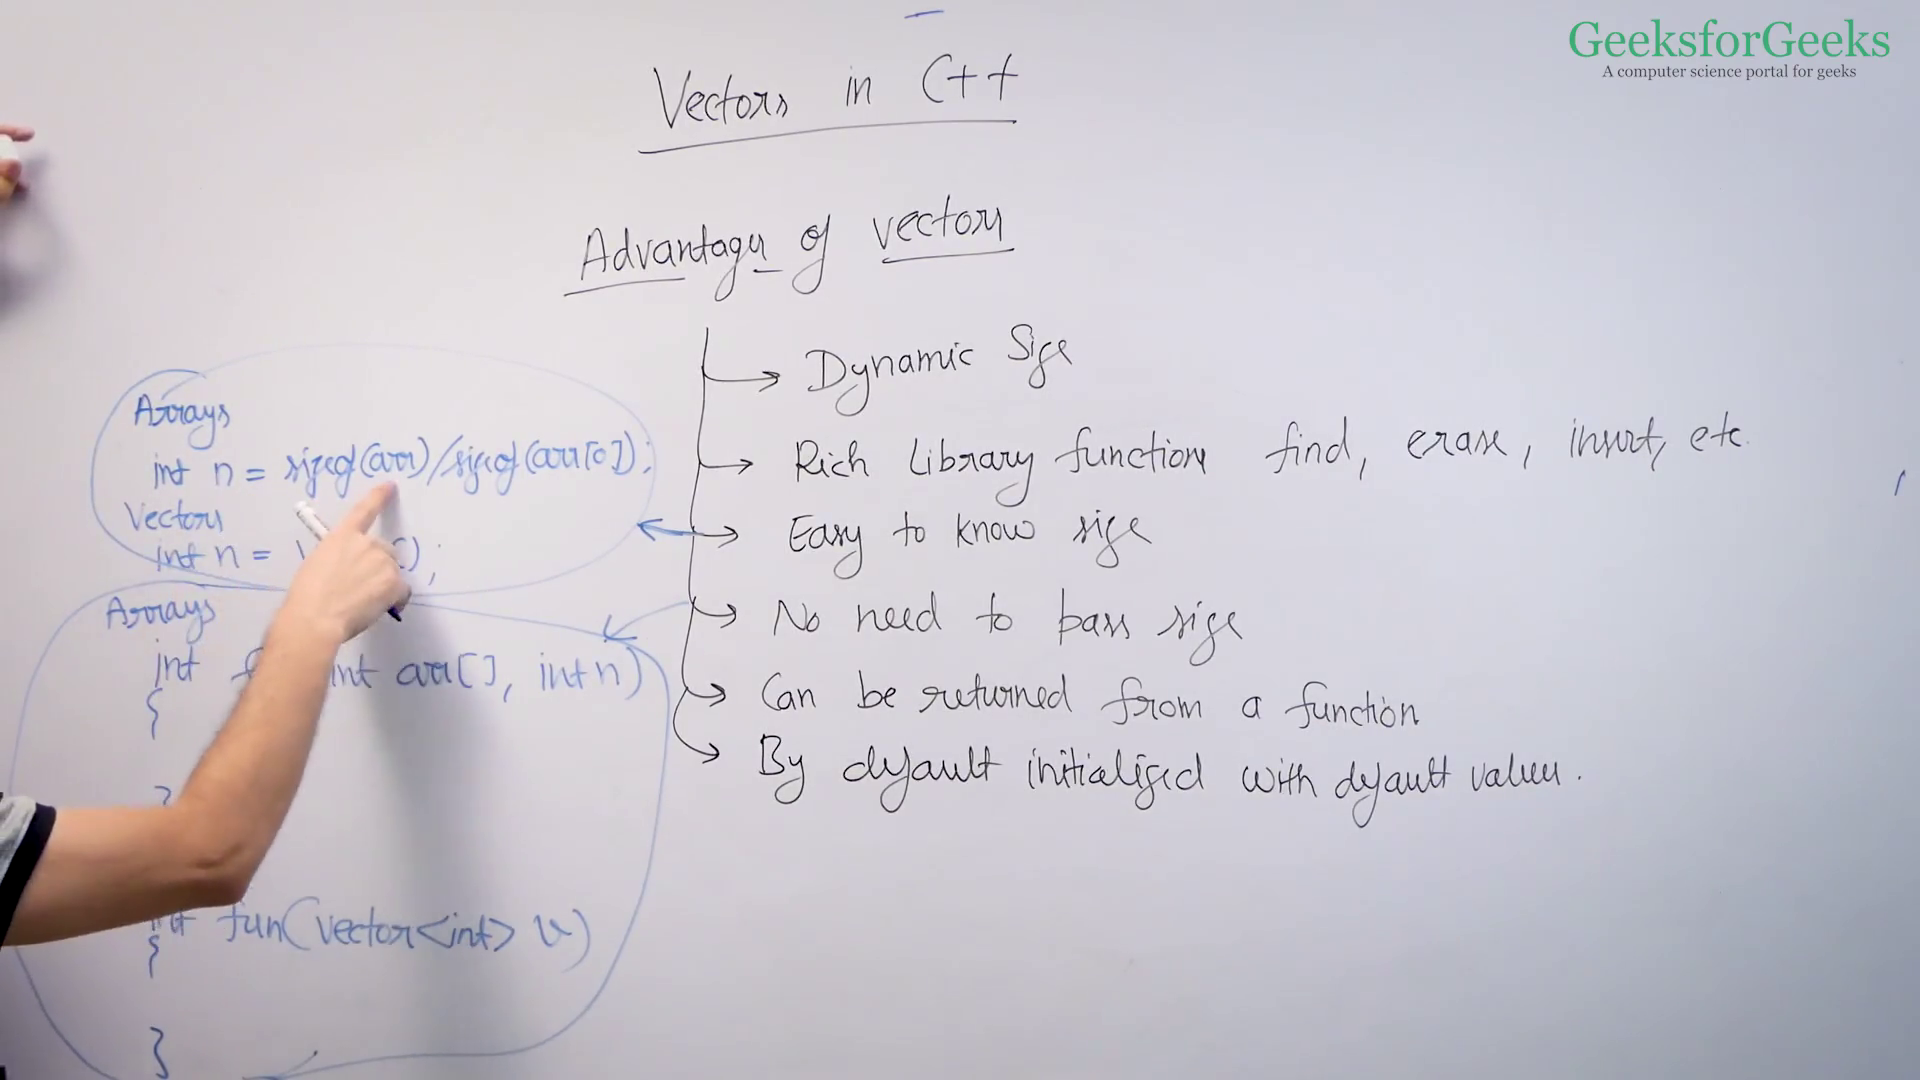 GeeksforGeeks
A computer science portal for geeks
Vectors in C++
Advantages of vectors
Dynamic Size
Rich Library functions find, erase, insert, etc
Easy to know size
No need to pass size
Can be returned from a function
By default initialized with default values.
Arrays
int n = sizeof(arr)/sizeof(arr[0]);
Vectors
int n = );
Arrays
int int arr[], int n)
{
}
fun(vector<int> v)
{
}